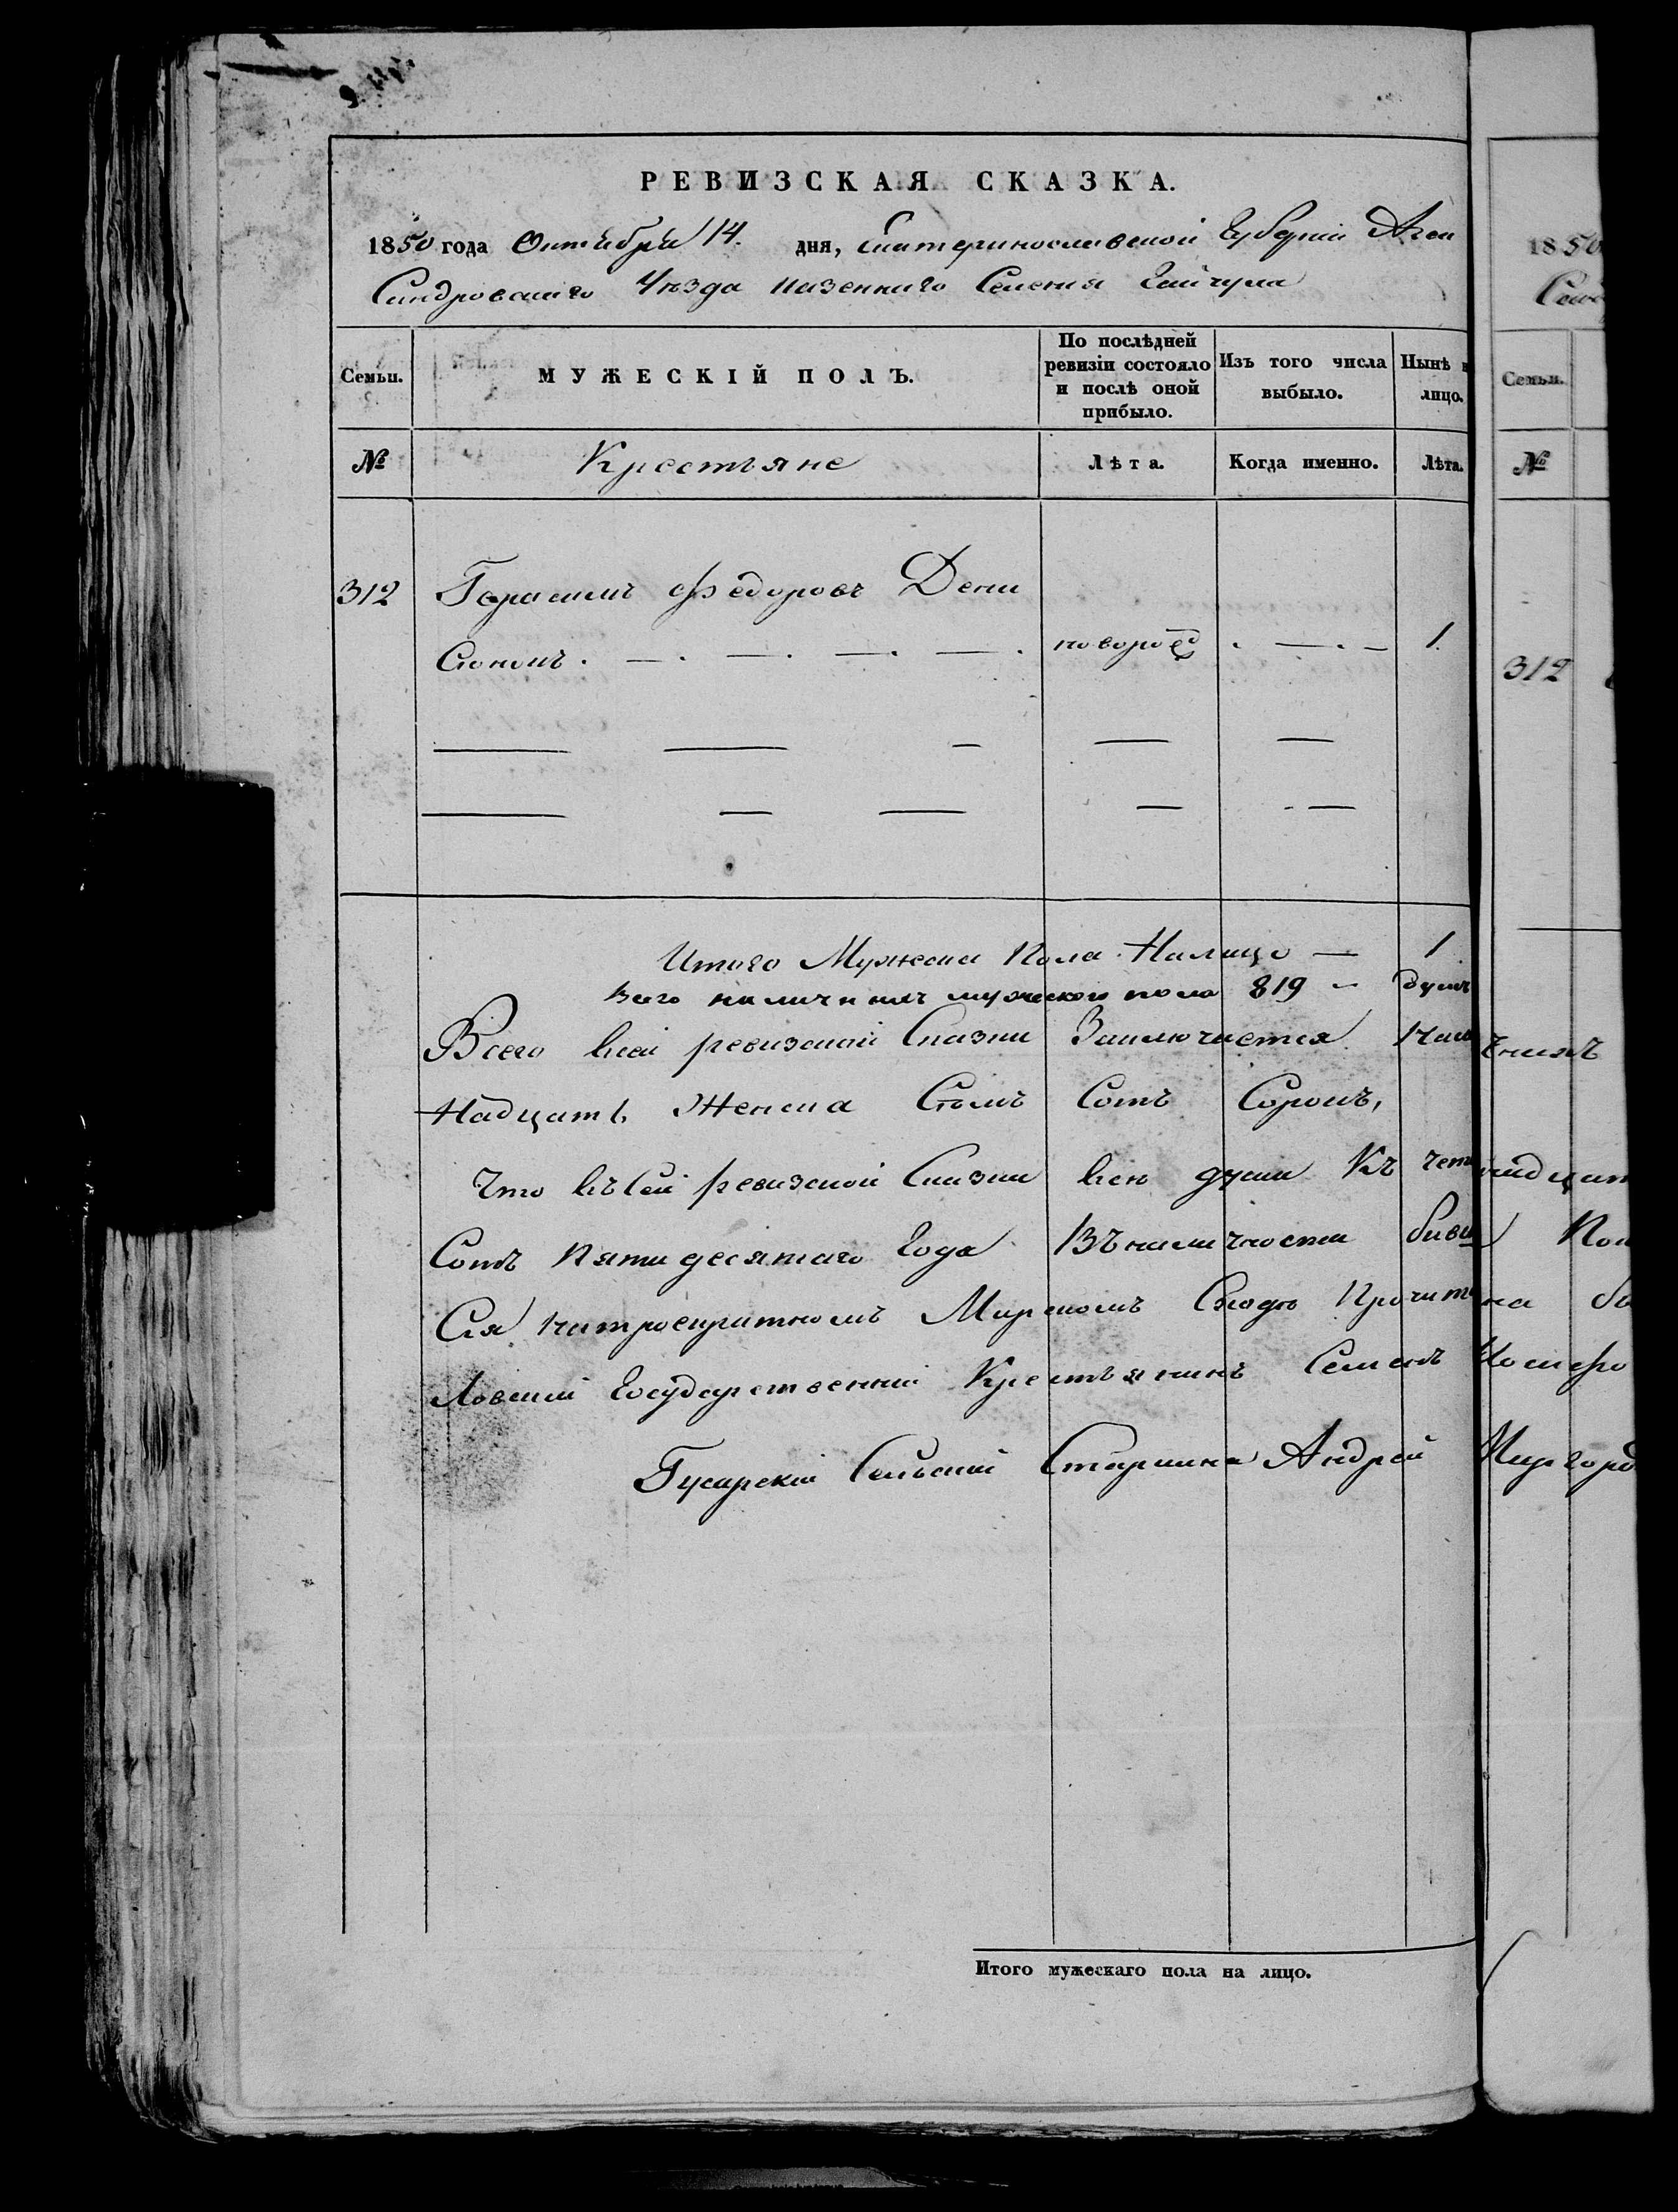 РЕВИЗСКАЯ СКАЗКА.
1850 года Октября 14. дня, Екатеринославской Губерніи Алек
сандровскаго Уѣзда казеннаго Селенія Гайчула
Семьи. МУЖЕСКІЙ ПОЛЪ. По послѣдней ревизіи состояло и послѣ оной прибыло. Изъ того числа выбыло. Нынѣ на лицо.
№ Крестьяне Лѣта. Когда именно. Лѣта.
312 Герасимъ Федоровъ Дени
сюкомъ . — . — . — . — . новорож . — . — 1.
Итого Мужеска Пола Налицо — 1
Всего наличныхъ мужескаго пола 819 — душъ
Всего всей ревизской Сказки Заключается
надцать Женска Семъ Сотъ Сорокъ,
Что въ Сей ревизской Сказки всѣ души Къ
Сотъ Пятидесятаго Года Въ наличности
Сія Мирскомъ Сходѣ
ловскій Государственній Крестьянинъ Семенъ
Гусарскій Сельскій Старшина Андрей Миргород
Итого мужескаго пола на лицо.
1850
Семьи.
№
312